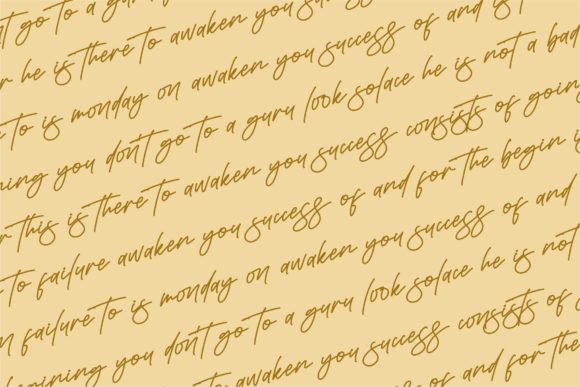 go to a gu
he is there to awaken you success of and is
to is monday on awaken you success of and
you don't go to a guru look solace he is not a bad
this is there to awaken you success consists of going
to failure awaken you success of and for the begin
failure to is monday on awaken you success of and
you don't go to a guru look solace he is not
to awaken you success consists of
of and for the